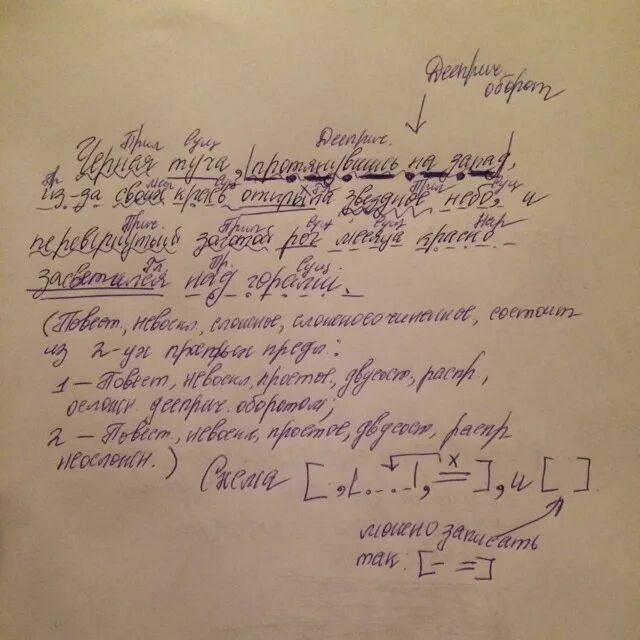 Дееприч.
оборот
Прил Сущ Дееприч.
Черная туча, |протянувшись на запад|,
Пр Мест Сущ Гл Прил Сущ
из-за своих краев открыла звездное небо, и
Прич. Прил Сущ Сущ Нар
перевернутый золотой рог месяца красно
Гл Пр. Сущ
засветился над горами.
(Повест, невоскл, сложное, сложносочиненное, состоит
из 2-ух простых предл:
1 – Повест, невоскл, простое, двусост, распр,
осложн. дееприч. оборотом;
2 – Повест, невоскл, простое, двусост, распр
неосложн.)
х
Схема [ , |...|, = ], и [ ].
можно записать
так: [- =]